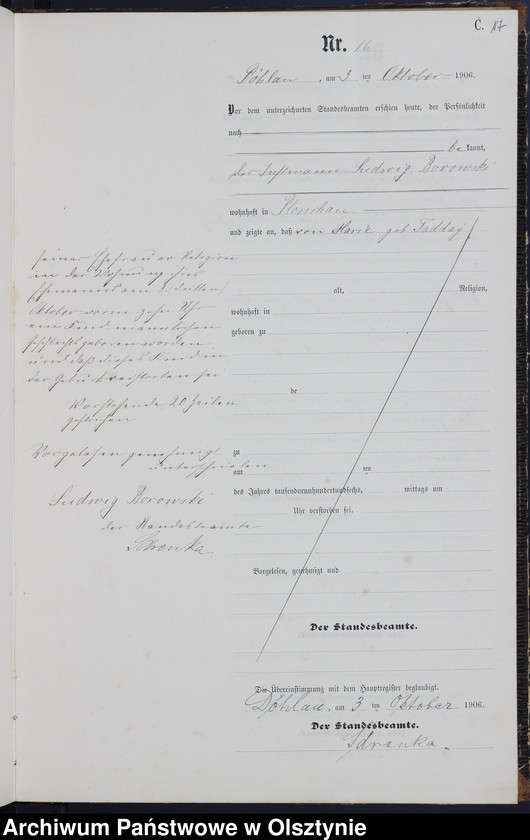 C. 17
Nr. 16
Döhlau, am 3 ten Oktober 1906.
Vor dem unterzeichneten Standesbeamten erschien heute, der Persönlichkeit
nach
be kannt,
der Ludwig Borowski
wohnhaft in
und zeigte an, daß von Marie geb Tadday
seiner Ehefrau ev Religion
in der Wohnung ihres
Ehemanns am 3. (dritten)
Oktober vorm zehn Uhr
ein Kind männlichen
Geschlechts geboren worden
und daß dieses Kind in
der Geburt verstorben sei
Vorstehende 20 Zeilen
gestrichen
Vorgelesen genehmigt
unterschrieben
Ludwig Borowski
der Standesbeamte
alt, Religion,
wohnhaft in
geboren zu
de
zu
am ten
des Jahres tausendneunhundertundsechs, mittags um
Uhr verstorben sei.
Vorgelesen, genehmigt und
Der Standesbeamte.
Die Übereinstimmung mit dem Hauptregister beglaubigt.
Döhlau, am 3 ten Oktober 1906.
Der Standesbeamte.
Archiwum Państwowe w Olsztynie